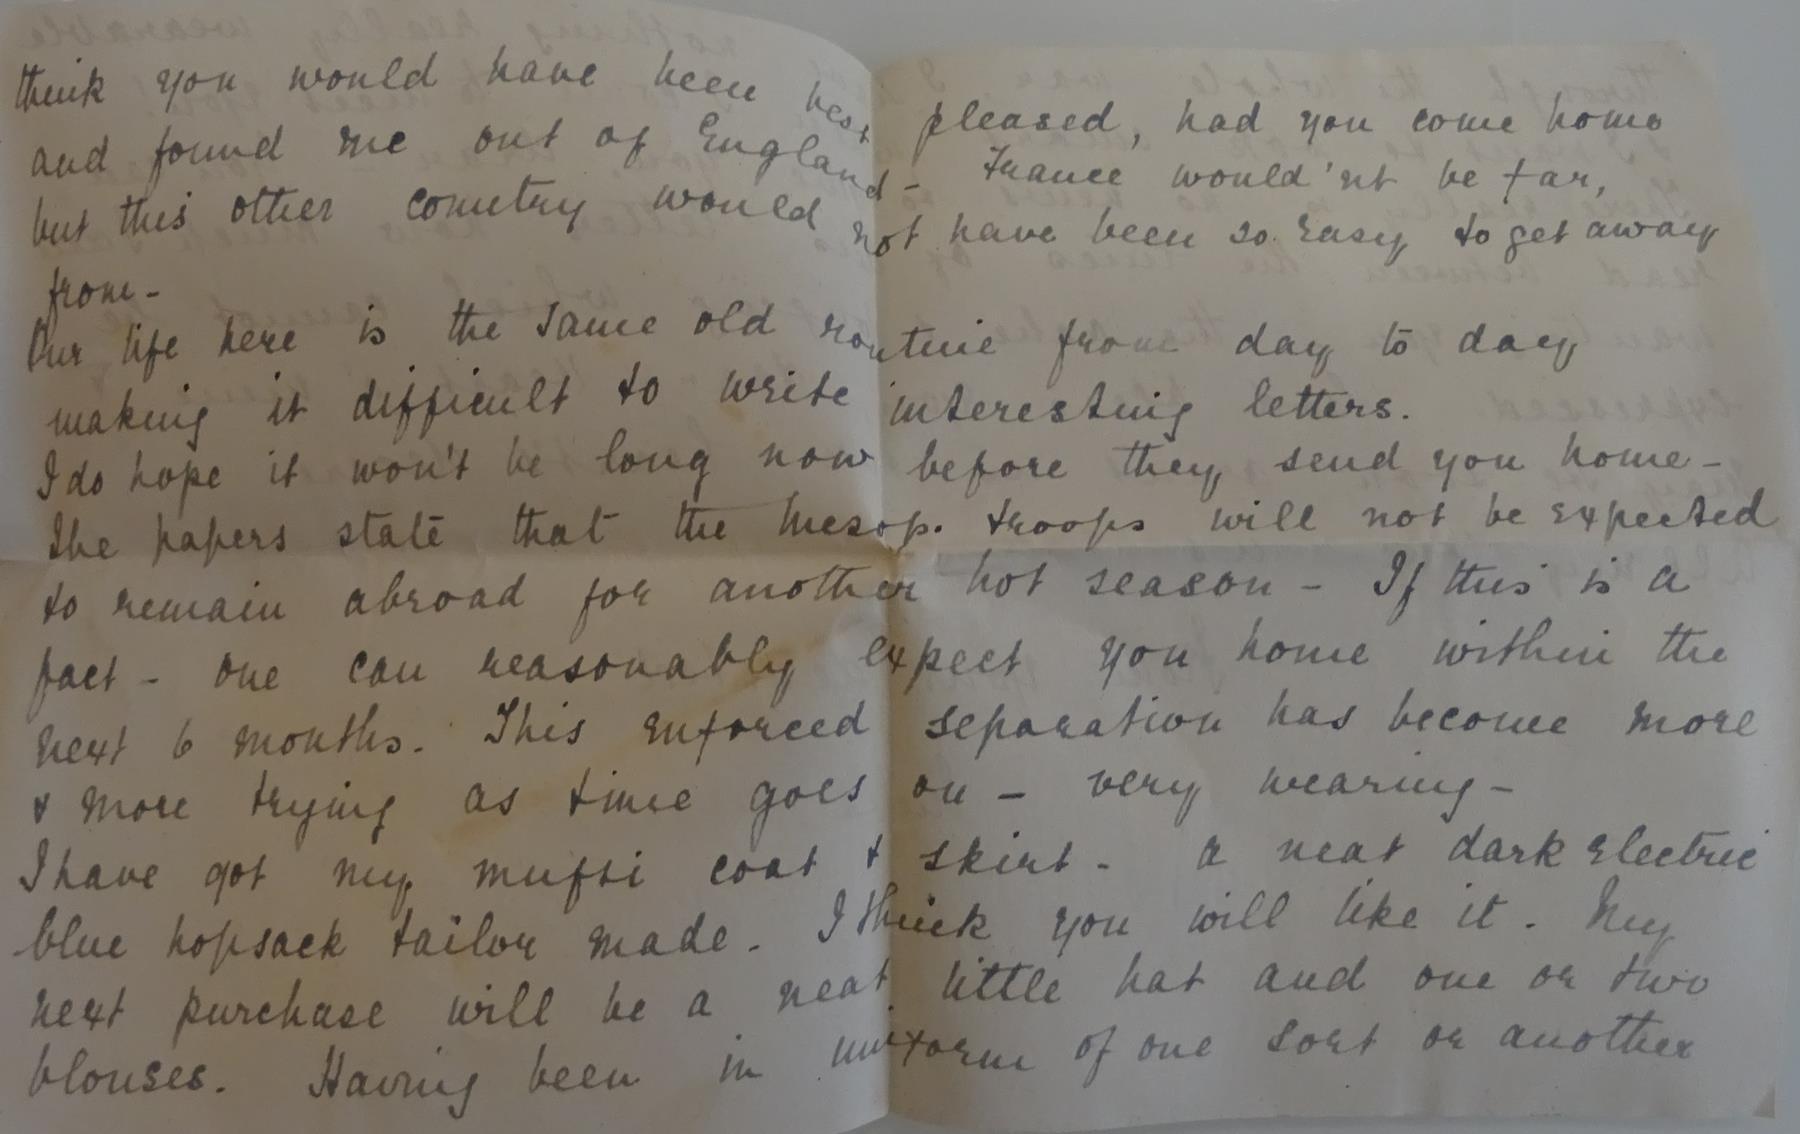 think you would have been best pleased, had you come home
and found me out of England - France would'nt be far,
but this other country would not have been so easy to get away
from -
Our life here is the same old routine from day to day
making it difficult to write interesting letters.
I do hope it won't be long now before they send you home -
The papers state that the Mesop. troops will not be expected
to remain abroad for another hot season - If this is a
fact - one can reasonably expect you home within the
next 6 months. This enforced separation has become more
& more trying as time goes on - very wearing -
I have got my mufti coat & skirt - a neat dark electric
blue hopsack tailor made - I think you will like it. My
next purchase will be a neat little hat and one or two
blouses. Having been in uniform of one sort or another